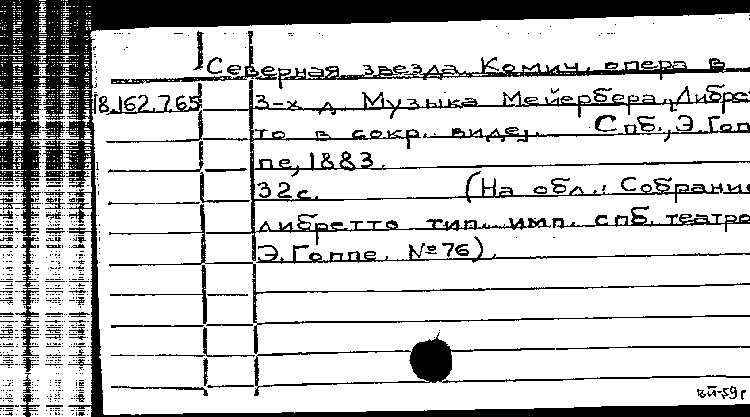 Северная звезда. Комич. опера в
18.162.7.65 3-х д. Музыка Мейербера, Либрет
то в сокр. виде, Спб., Э. Гоп
пе, 1883.
32 с. (На обл.: Собрание
либретто тип. имп. спб. театро
Э. Гоппе. №76).